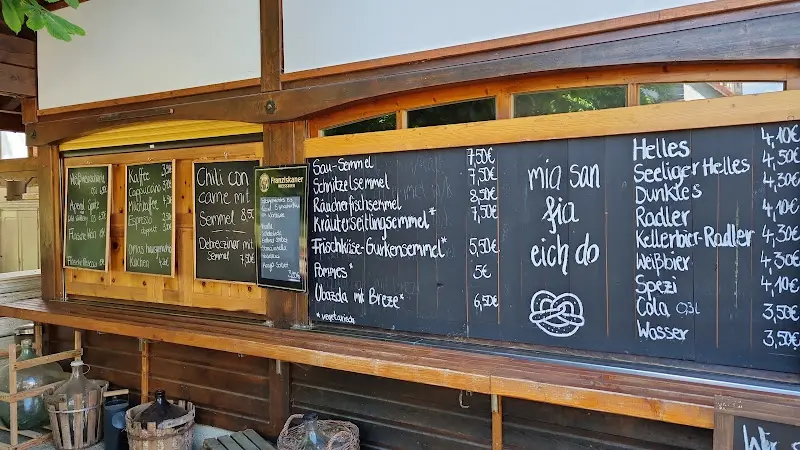 Kaffee
Cappuccino
Milchkaffee
Espresso
Omas hausgemachte
Kuchen
Chili con
carne mit
Semmel 8,5
Debrecziner mit
Semmel 7,50€
Franziskaner
WEISSBIER
Sau-Semmel 7,50€
Schnitzelsemmel 7,50€
Räucherfischsemmel 8,50€
Kräuterseitlingsemmel* 7,50€
Frischkäse-Gurkensemmel* 5,50€
Pommes* 5€
Obazda mit Breze* 6,50€
*vegetarisch
mia san
fia
eich do
Helles 4,10€
Seeliger Helles 4,50€
Dunkles 4,50€
Radler 4,10€
Kellerbier-Radler 4,50€
Weißbier 4,30€
Spezi 4,10€
Cola 0,3l 3,50€
Wasser 3,50€
Wir